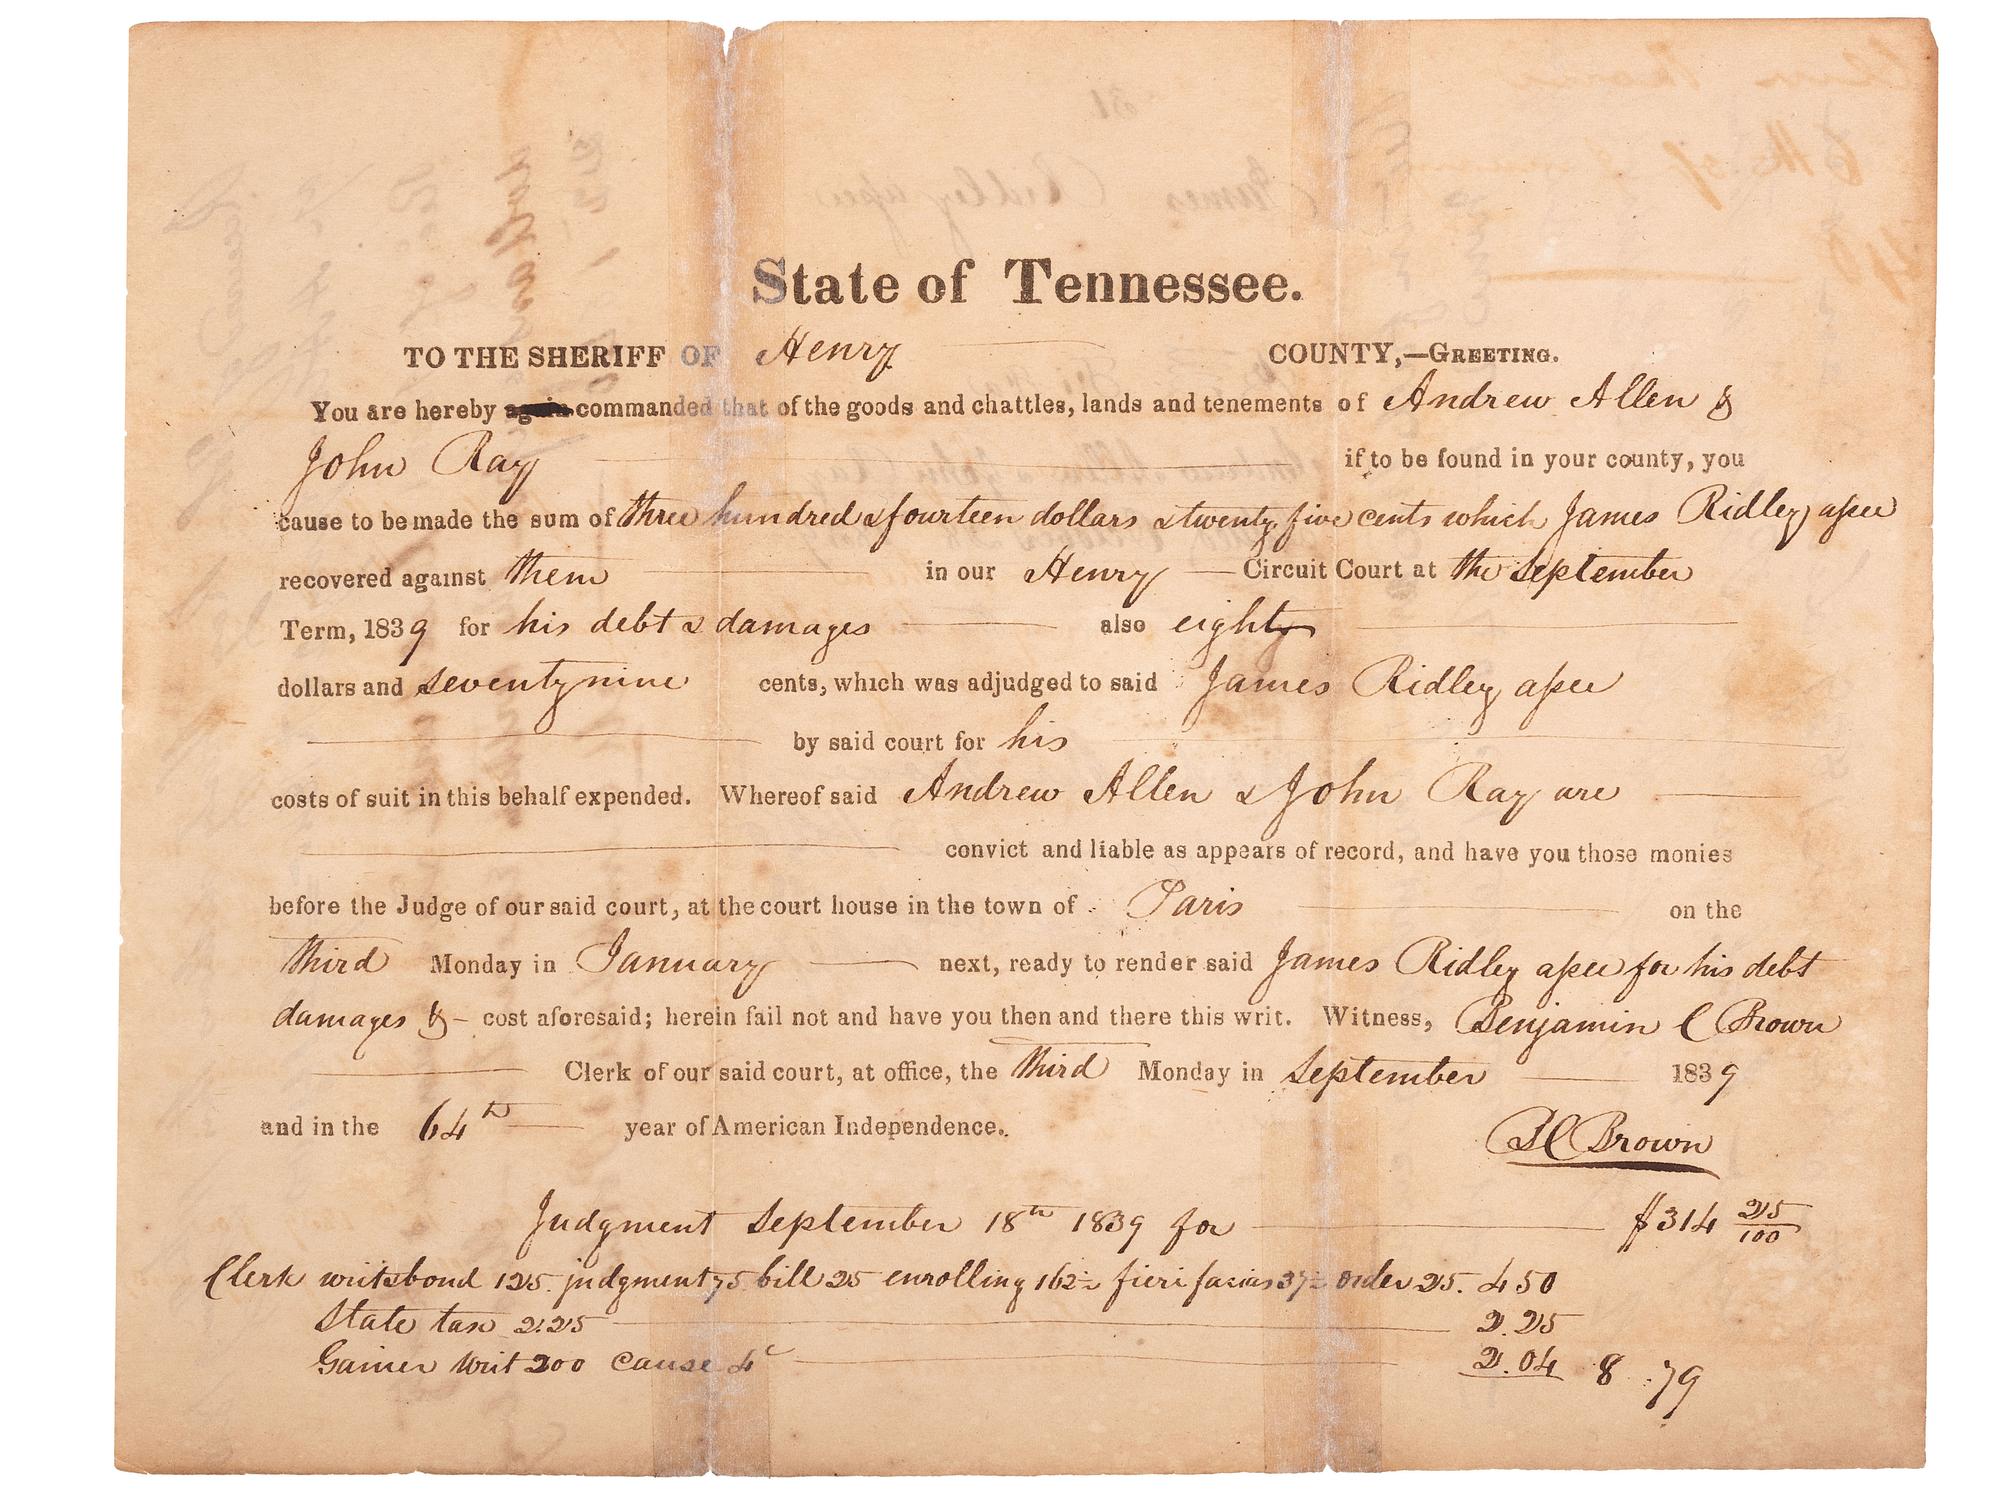 State of Tennessee.
TO THE SHERIFF OF Henry COUNTY,—GREETING.
You are hereby again commanded that of the goods and chattles, lands and tenements of Andrew Allen &
John Ray if to be found in your county, you
cause to be made the sum of three hundred & fourteen dollars & twenty five cents which James Ridley assee
recovered against them in our Henry Circuit Court at the September
Term, 1839 for his debt & damages also eight
dollars and seventy nine cents, which was adjudged to said James Ridley assee
by said court for his
costs of suit in this behalf expended. Whereof said Andrew Allen & John Ray are
convict and liable as appears of record, and have you those monies
before the Judge of our said court, at the court house in the town of Paris on the
third Monday in January next, ready to render said James Ridley assee for his debt
damages & cost aforesaid; herein fail not and have you then and there this writ. Witness, Benjamin C Brown
Clerk of our said court, at office, the third Monday in September 1839
and in the 64th year of American Independence.
B C Brown
Judgment September 18th 1839 for $314 25/100
Clerk writ & bond 125. judgment 75 bill 25 enrolling 162½ fieri facias 37½ order 25. 4 50
State tax 2.25 2.25
Gainer writ 200 cause 4c 2.04 8.79